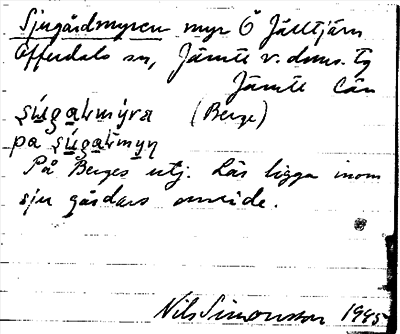 Sjugårdmyren myr Ö Jälltjärn
Offerdals sn, Jämtl. v. doms. tg
Jämtl. län
sú̱ga̱ḷmýra (Berge)
pa sú̱ga̱ḷmyn̥
På Berges utj. Lär ligga inom
sju gårdars område.
Nils Simonsson 1945